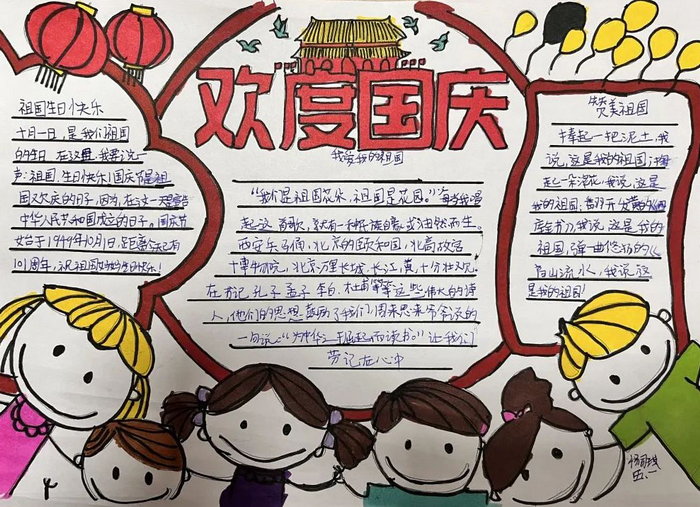 欢度国庆
祖国生日快乐
十月一日,是我们祖国
的生日,在这里,我要说一
声:祖国,生日快乐!国庆节是祖
国欢庆的日子,因为,在这一天
中华人民共和国成立的日子。国庆节
始于1949年10月1日,距离今天已有
101周年,祝祖国妈妈的快乐!
我爱我的祖国
“我们是祖国花朵,祖国是花园。”每当我唱
起这首歌,就有一种自豪感油然而生。
西安兵马俑,北京的颐和园,北京故宫
博物院,北京万里长城,长江,黄十分壮观。
在书记孔子孟子李白、杜甫等等这些伟大的诗
人,他们的思想我们!周恩来常常说的
一句话:“为中华之崛起而读书。”让我们
劳记在心中
赞美祖国
捧起一把泥土,我
说,这是我的祖国;
起一朵浪花,我说,这是
我的祖国,
我说,这是我的
祖国,弹一曲悠扬的《
高山流水》,我说,这
是我的祖国!
五、一